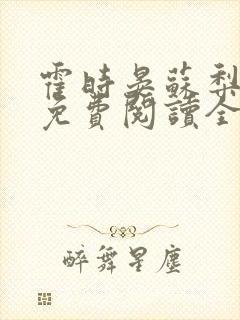 霍時晏蘇梨
免費閱讀全
醉舞星塵